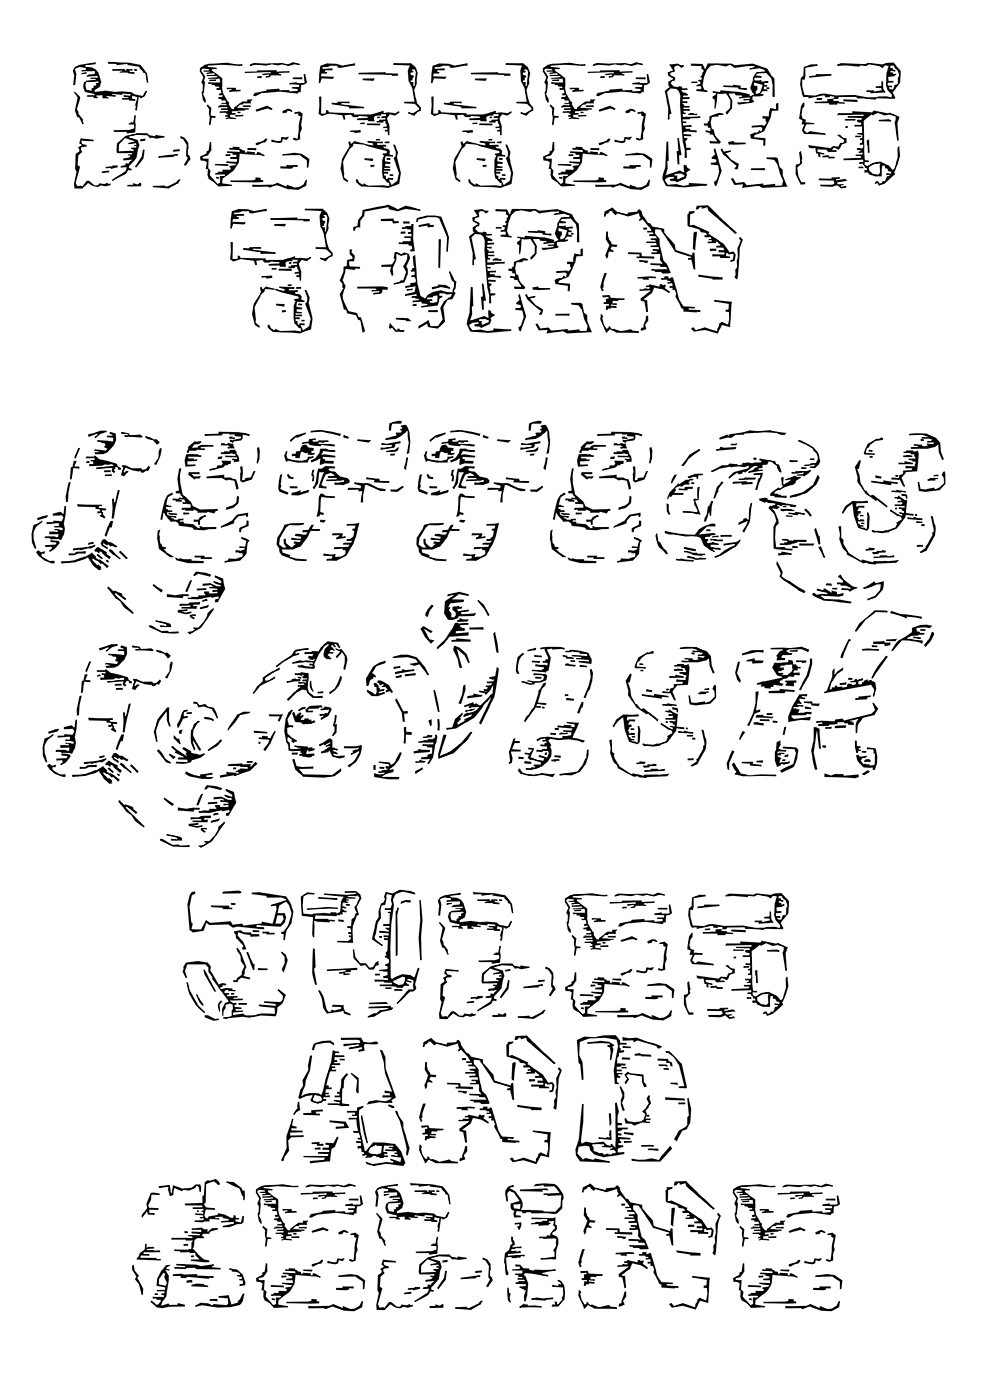 LETTERS
TORN
LETTERS
LAVISH
JULES
AND
CELINE